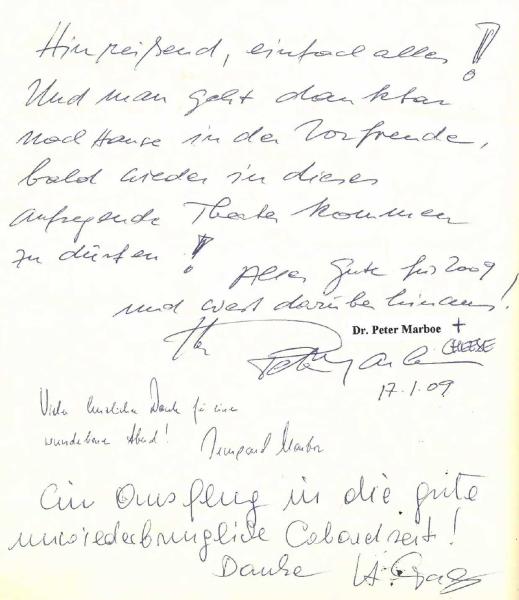 Hinreißend, einfach alles!
Und man geht dankbar
nach Hause in der Vorfreude,
bald wieder in dieses
aufregende Theater kommen
zu dürfen!
Alles Gute für 2009
und weit darüber hinaus!
Ihr
Dr. Peter Marboe +
CHEESE
Peter Marboe
17.1.09
Viele herzliche Dank für eine
wunderbare Abend!
Irmgard Marboe
Ein Ausflug in die gute
unwiederbringliche Cabaretzeit!
Danke